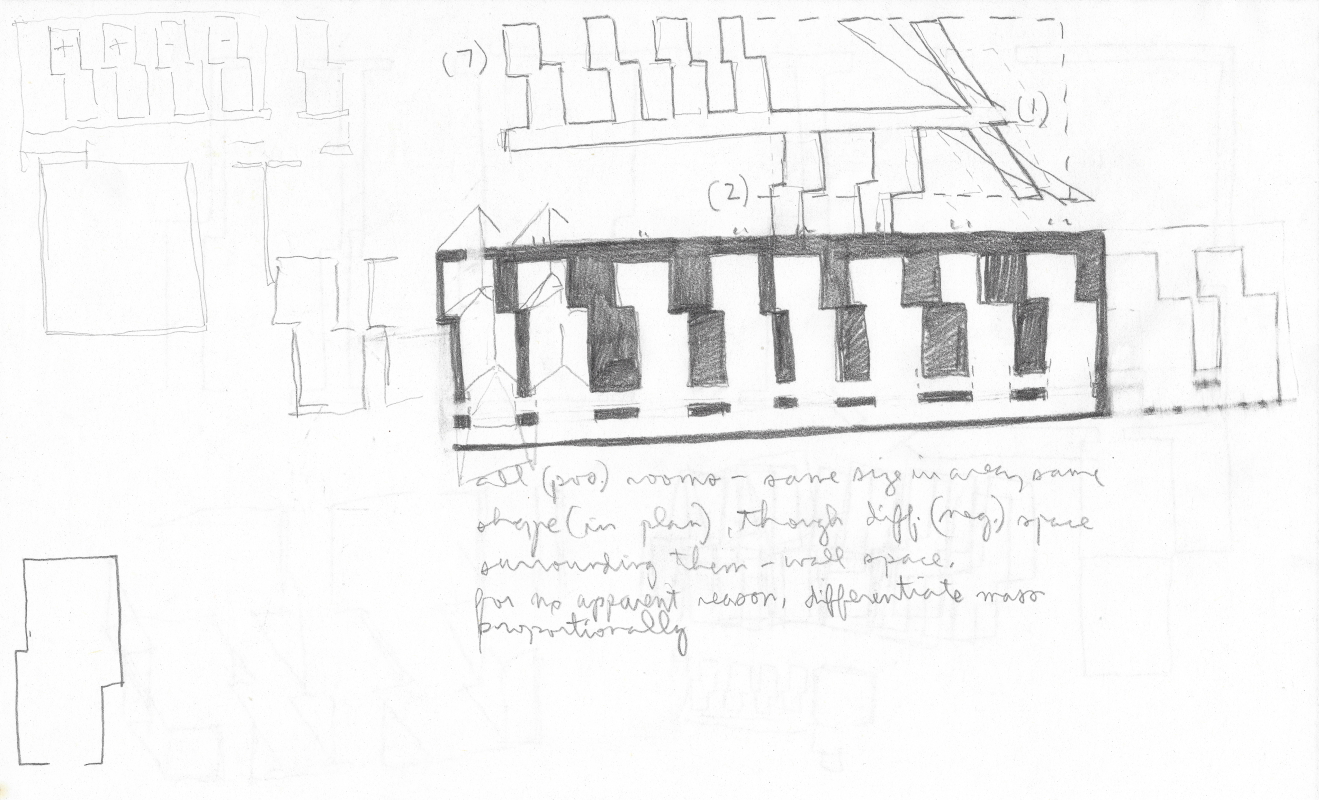 + + - -
(7)
(1)
(2)
all (pos.) rooms - same size in area, same
shape (in plan), though diff. (neg.) space
surrounding them - wall space.
for no apparent reason, differentiate mass
proportionally